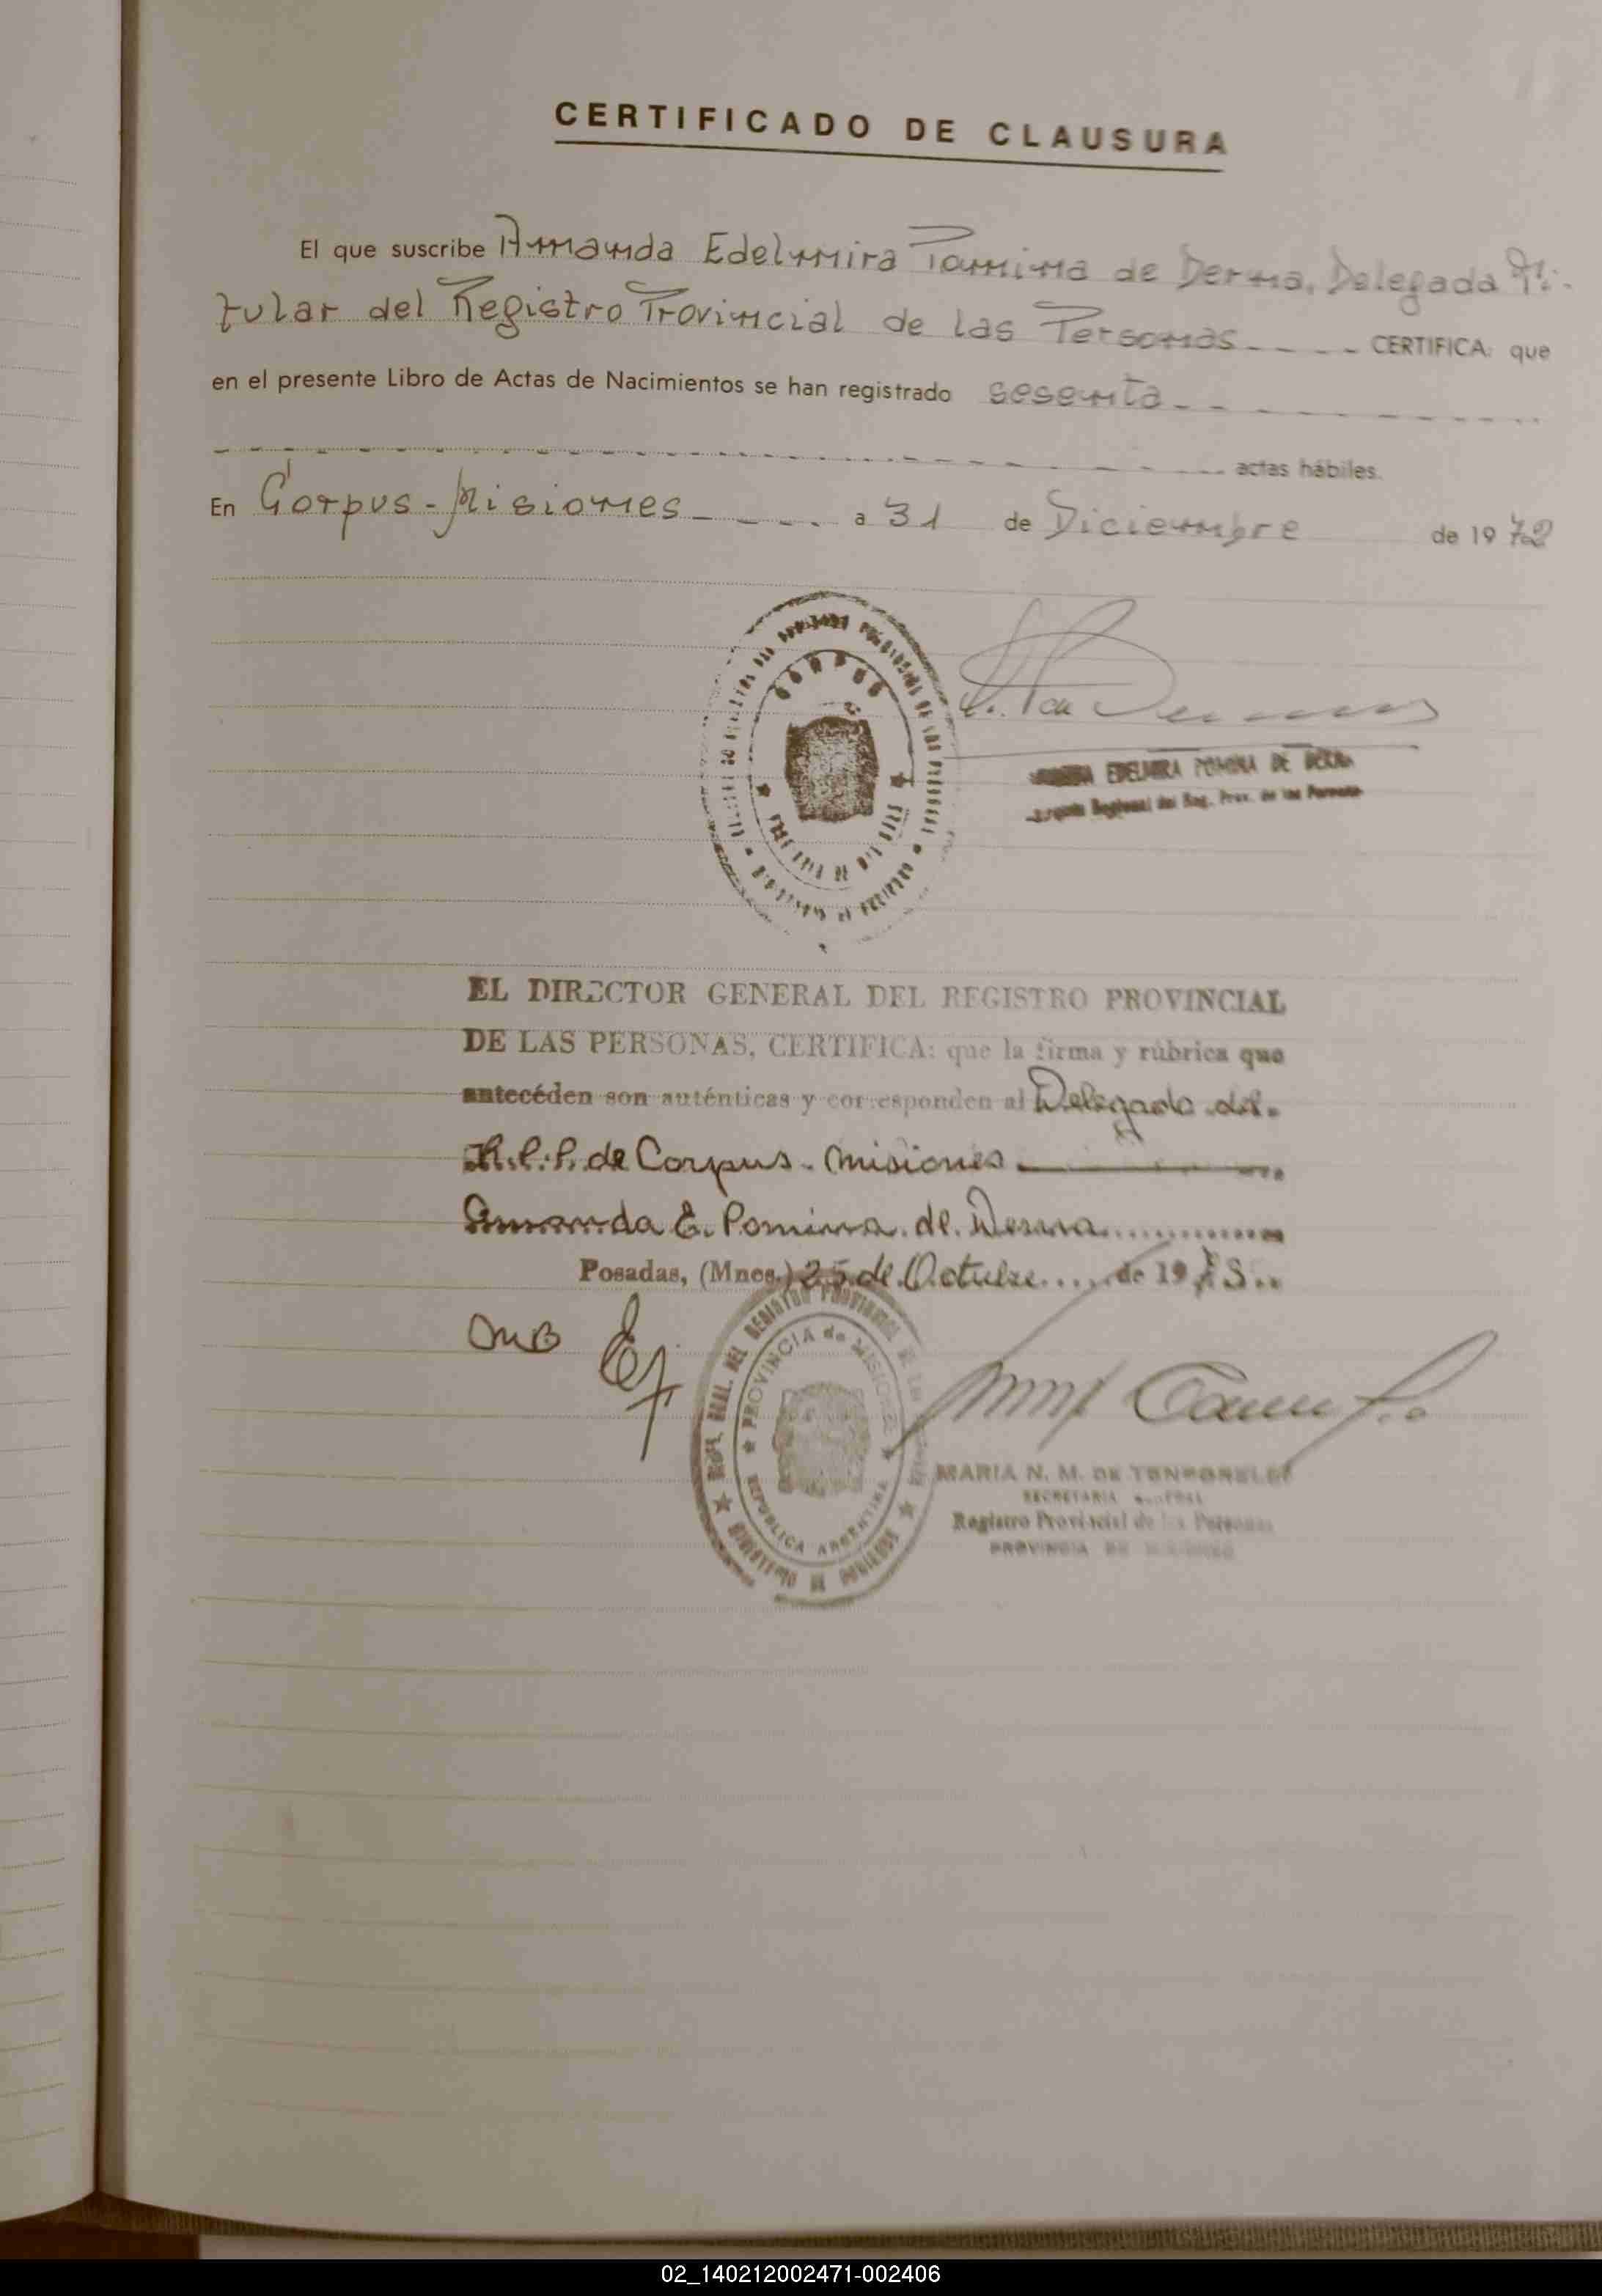 CERTIFICADO DE CLAUSURA
El que suscribe Amanda Edelmira Pomina de Derna, Delegada Ti-
tular del Registro Provincial de las Personas - - - - CERTIFICA: que
en el presente Libro de Actas de Nacimientos se han registrado sesenta - -
actas hábiles.
En Corpus - Misiones - - - - a 31 de Diciembre de 1972
CORPUS
EDELMIRA POMINA DE DERNA
Regional del Reg. Prov. de las Personas
EL DIRECTOR GENERAL DEL REGISTRO PROVINCIAL
DE LAS PERSONAS, CERTIFICA: que la firma y rúbrica que
antecéden son auténticas y corresponden al Delegado del.
R.P.P. de Corpus - Misiones
Amanda E. Pomina de Derna
Posadas, (Mnes.) 25 de Octubre de 19
DEL REGISTRO PROVINCIAL
PROVINCIA de MISIONES
REPUBLICA ARGENTINA
MINISTERIO DE GOBIERNO
MARIA N. M. DE
SECRETARIA
Registro Provincial de las Personas
PROVINCIA DE MISIONES
02_140212002471-002406